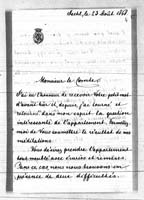 le 23 Août 18
Monsieur le Comte
J'ai eu l'honneur de recevoir votre petit mot
d'avant-hier et, depuis, j'ai tourné et
retourné dans mon esprit la question
intéressante de l'appartement,
moi de vous soumettre le résultat de mes
méditations.
Vous désirez prendre l'appartement
tout meublé avec
Dans ce cas, nous nous trouvons en
présence de deux difficultés.